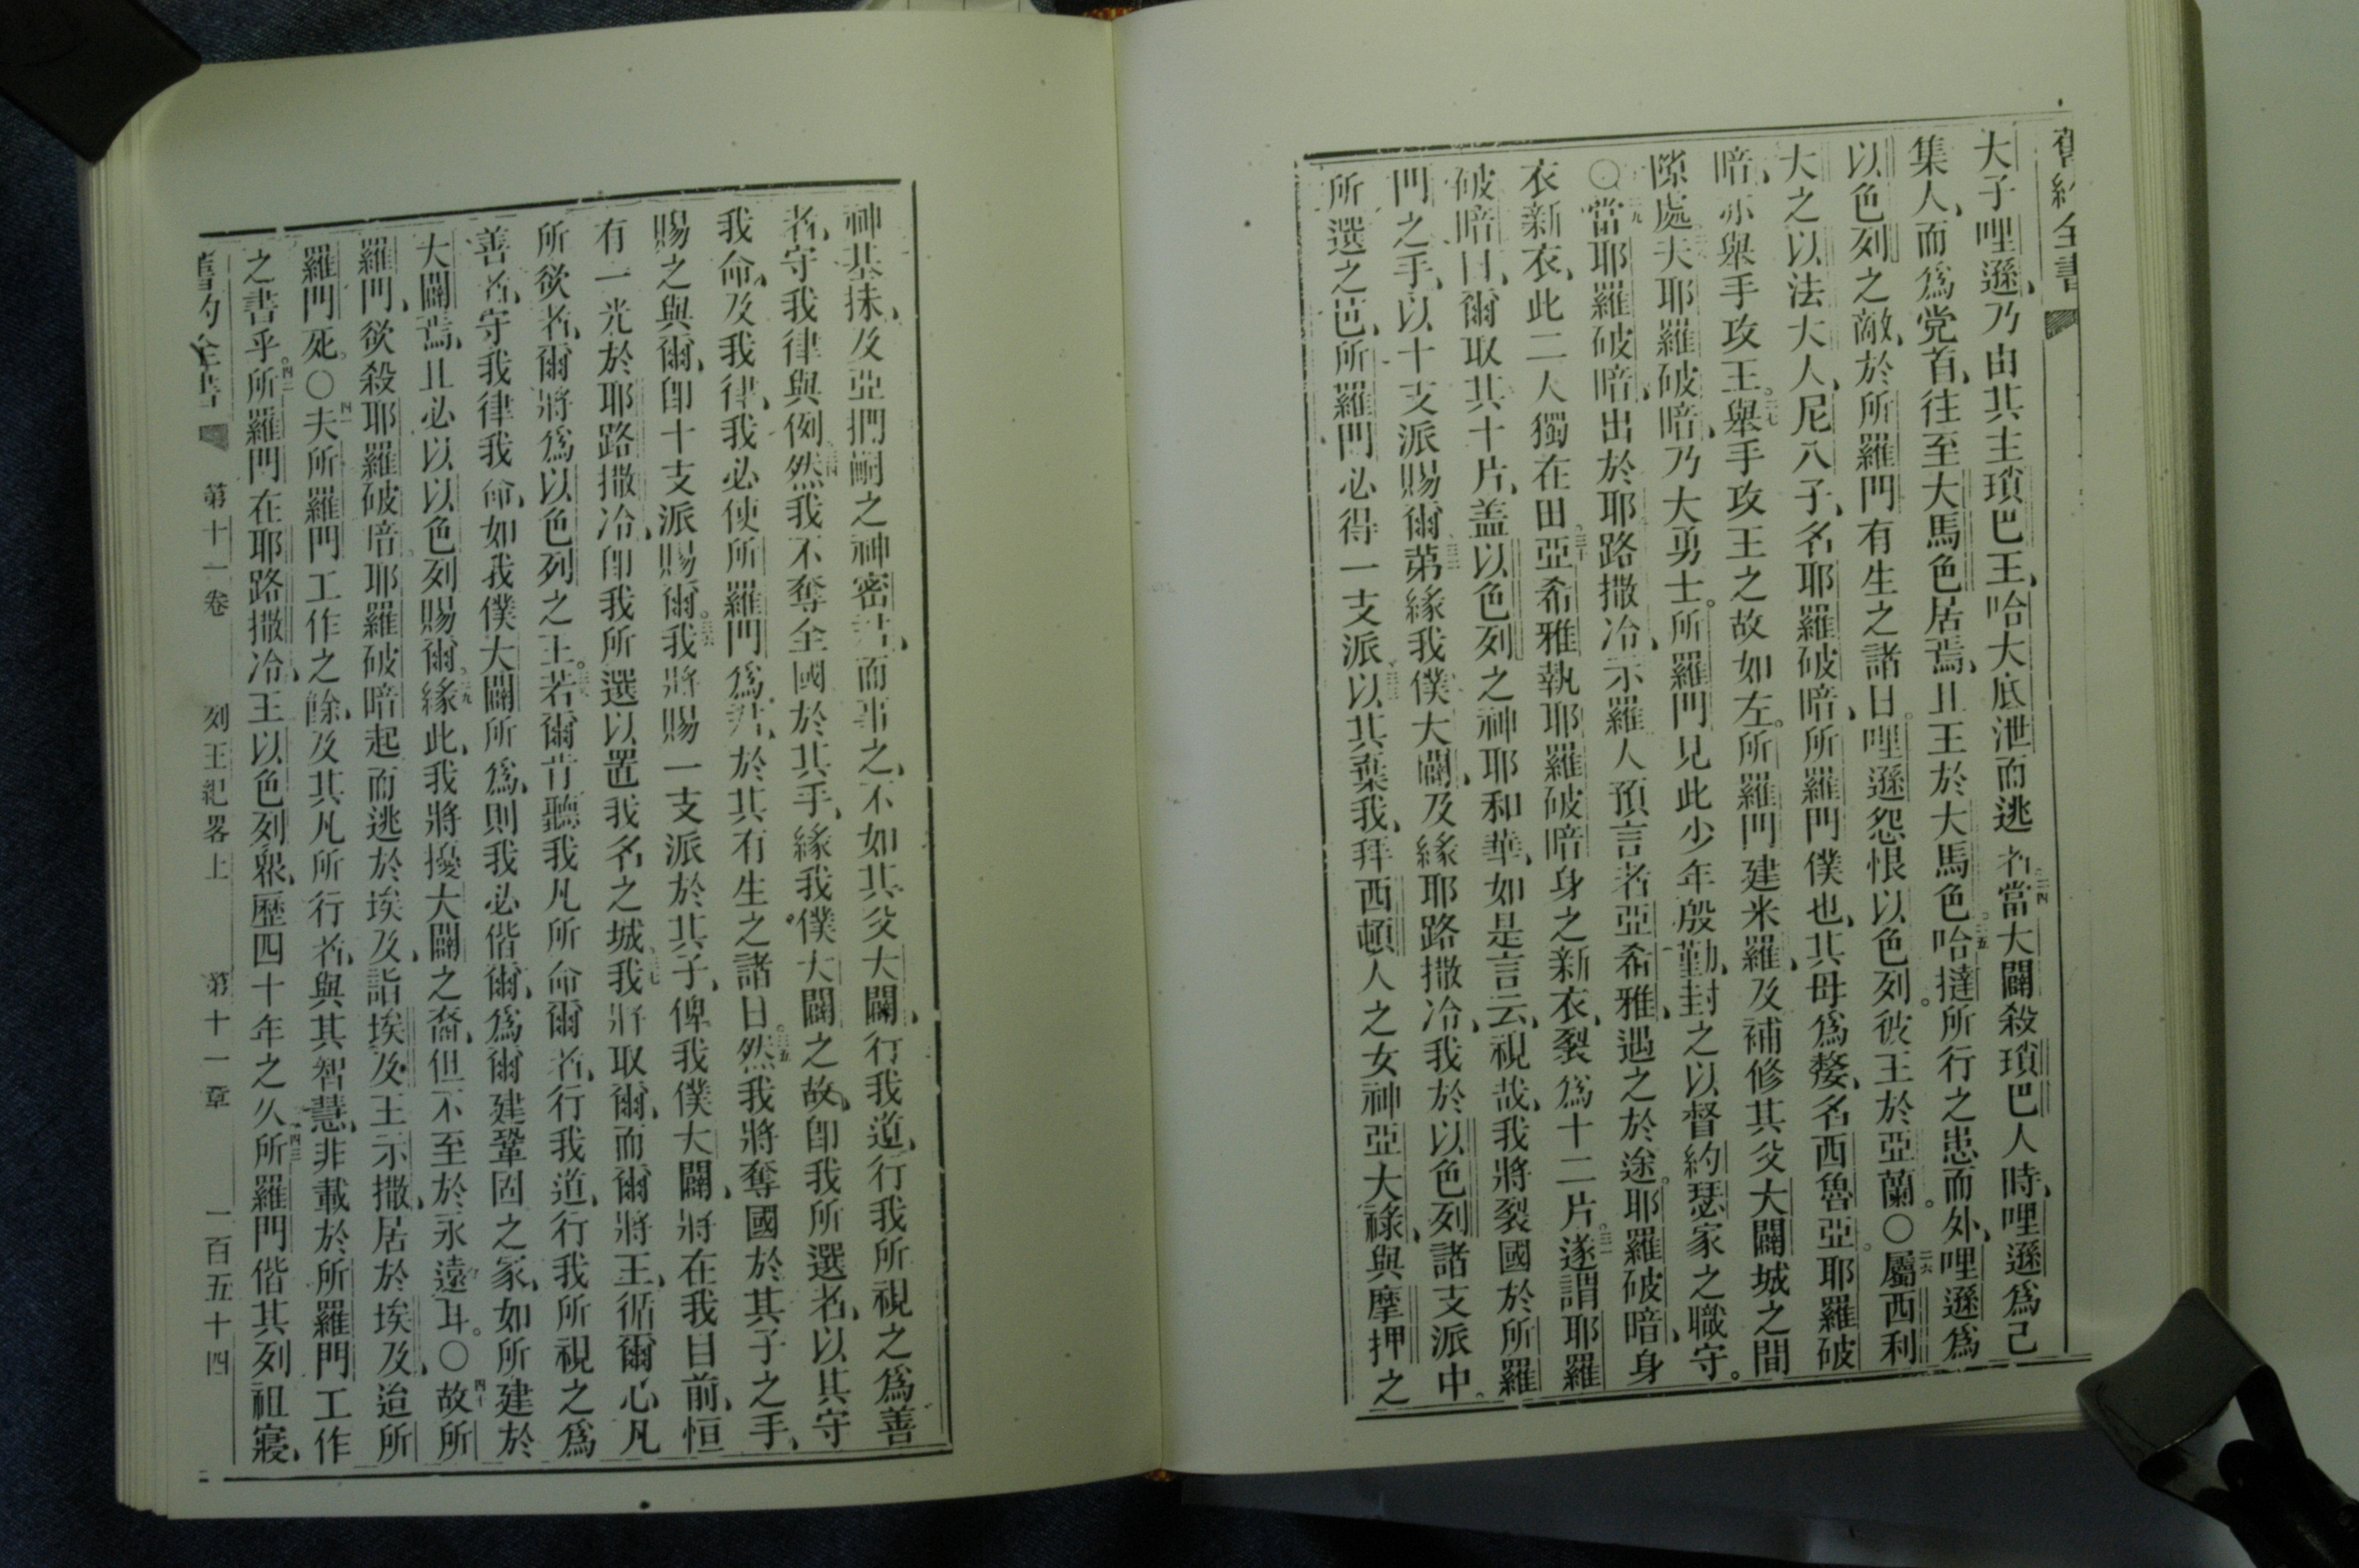 舊約全書
大子哩遜、乃由其主瑣巴王、哈大底泄而逃 者二四當大闢殺瑣巴人時、哩遜爲己
集人、而爲党首、往至大馬色居焉、且王於大馬色。二五哈撻所行之患而外、哩遜爲
以色列之敵、於所羅門有生之諸日。哩遜怨恨以色列。彼王於亞蘭。〇二六屬西利
大之以法大人、尼八子、名耶羅破暗、所羅門僕也、其母爲嫠、名西魯亞。耶羅破
暗、亦舉手攻王。二七舉手攻王之故如左。所羅門建米羅、及補修其父大闢城之間
隙處。夫耶羅破暗、乃大勇士。所羅門見此少年殷勤、封之以督約瑟家之職守。
〇二九當耶羅破暗、出於耶路撒冷、示羅人預言者亞希雅、遇之於途。耶羅破暗、身
衣新衣、此二人獨在田。三十亞希雅執耶羅破暗身之新衣、裂爲十二片。三一遂謂耶羅
破暗曰、爾取其十片、蓋以色列之神耶和華、如是言云、視哉、我將裂國於所羅
門之手、以十支派賜爾。三二第緣我僕大闢、及緣耶路撒冷、我於以色列諸支派中。
所選之邑、所羅門必得一支派。三三以其棄我、拜西頓人之女神亞大祿、與摩押之
神基抹、及亞捫嗣之神密君、而事之、不如其父大闢、行我道、行我所視之爲善
者、守我律與例。三四然我不奪全國於其手、緣我僕大闢之故、卽我所選者、以其守
我命、及我律、我必使所羅門爲君、於其有生之諸日。三五然我將奪國於其子之手、
賜之與爾、卽十支派賜爾。三六我將賜一支派於其子、俾我僕大闢、將在我目前、恒
有一光於耶路撒冷、卽我所選以置我名之城。三七我將取爾、而爾將王、循爾心凡
所欲者、爾將爲以色列之王。三八若爾肯聽我凡所命爾者、行我道、行我所視之爲
善者、守我律我命、如我僕大闢所爲、則我必偕爾、爲爾建鞏固之家、如所建於
大闢焉、且必以以色列賜爾。三九緣此、我將擾大闢之裔、但不至於永遠耳。〇四十故所
羅門、欲殺耶羅破暗。耶羅破暗起而逃於埃及、詣埃及王示撒、居於埃及、迨所
羅門死。〇四一夫所羅門工作之餘、及其凡所行者、與其智慧、非載於所羅門工作
之書乎。四二所羅門在耶路撒冷、王以色列衆、歷四十年之久。四三所羅門偕其列祖寢、
舊約全書 第十一卷 列王紀畧上 第十一章 一百五十四